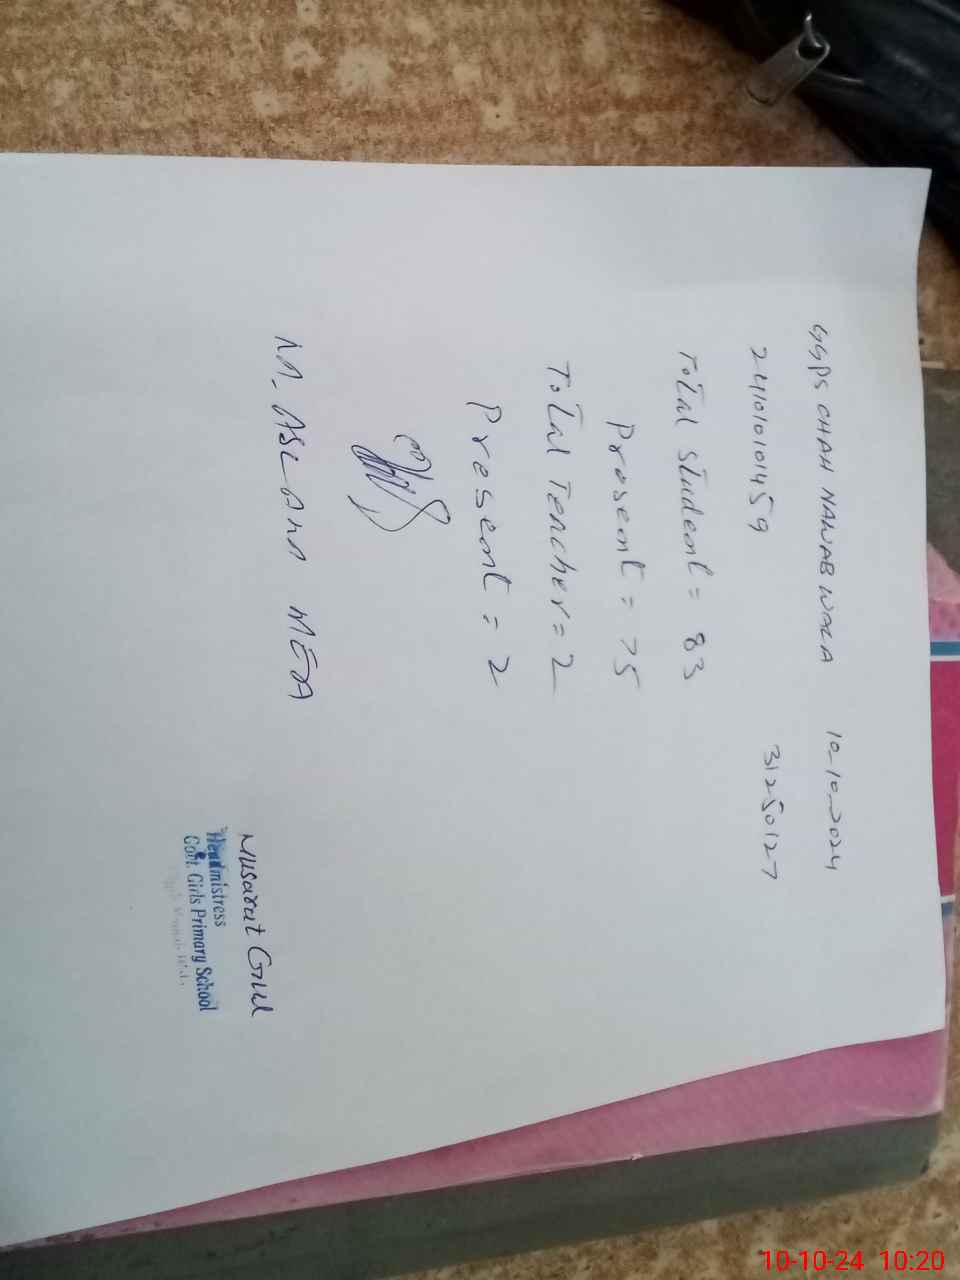 GGPS CHAH NAWAB WALA 10-10-2024
2410101459 31250127
Total Student = 83
Present = 75
Total Teacher = 2
Present = 2
M. ASLAM MEA
Musarat Gul
Headmistress
Govt. Girls Primary School
10-10-24 10:20